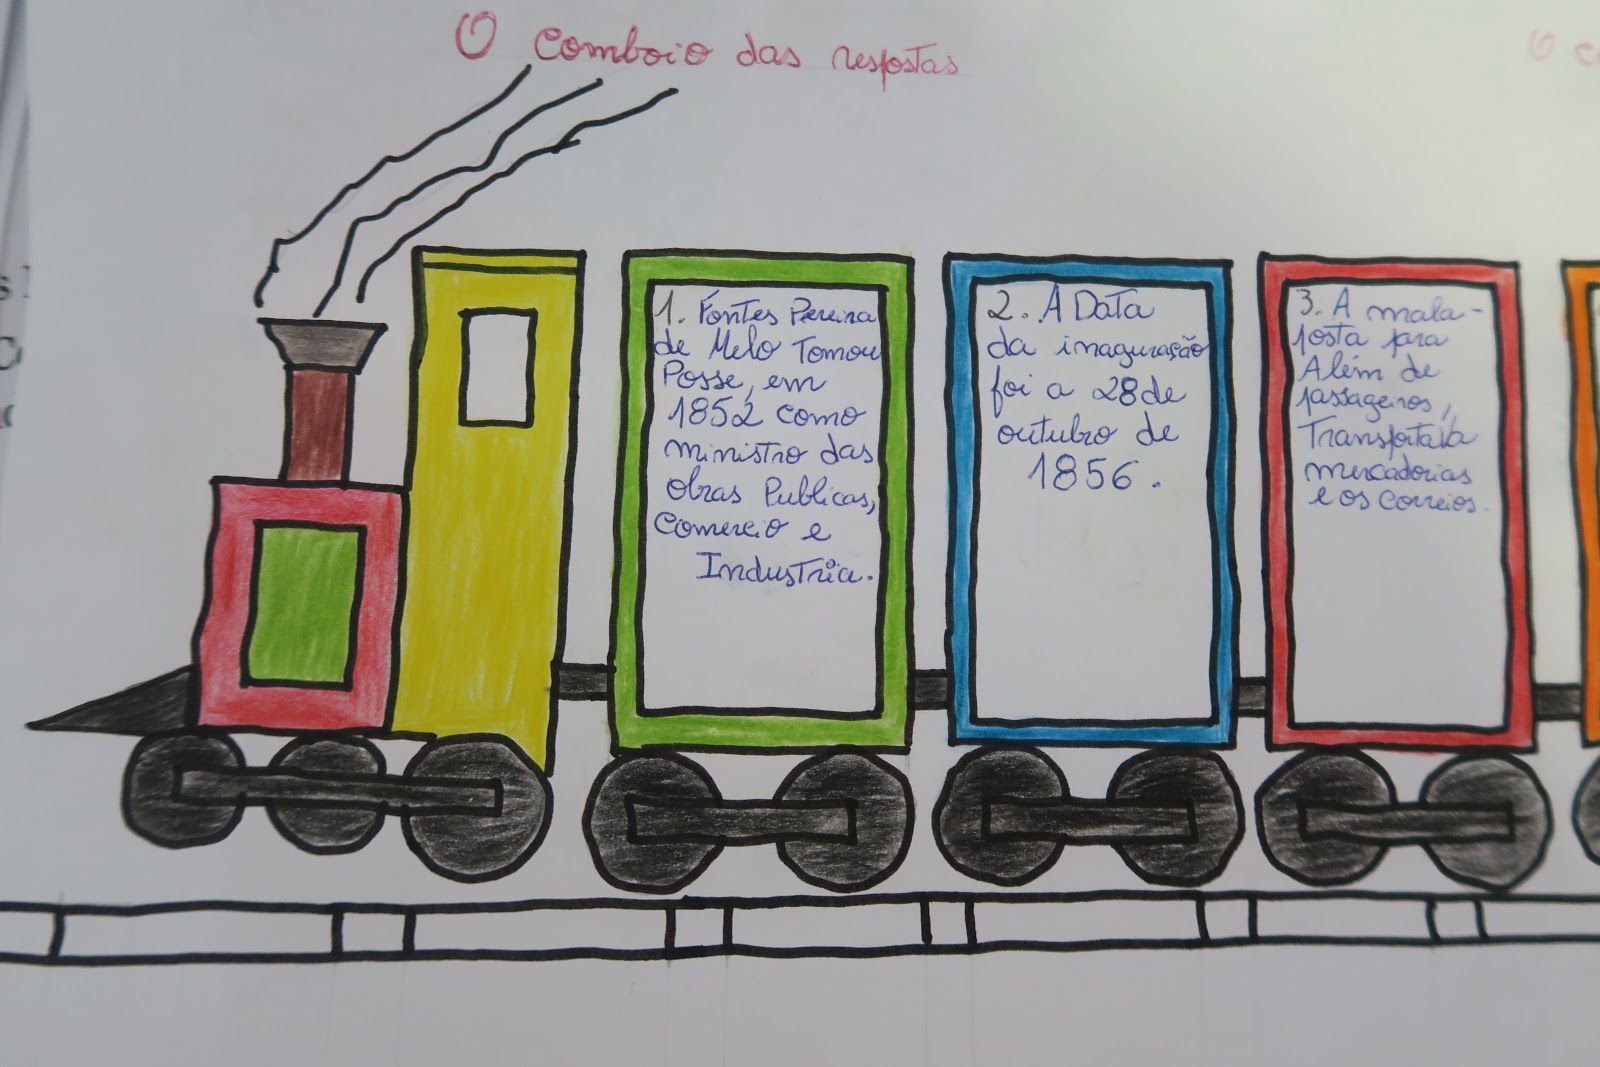 O comboio das respostas
1. Fontes Pereira
de Melo Tomou
Posse, em
1852 como
ministro das
obras Publicas,
Comercio e
Industria.
2. A Data
da inaguração
foi a 28 de
outubro de
1856.
3. A mala-
posta para
Além de
passageiros,
Transportava
mercadorias
e os correios.